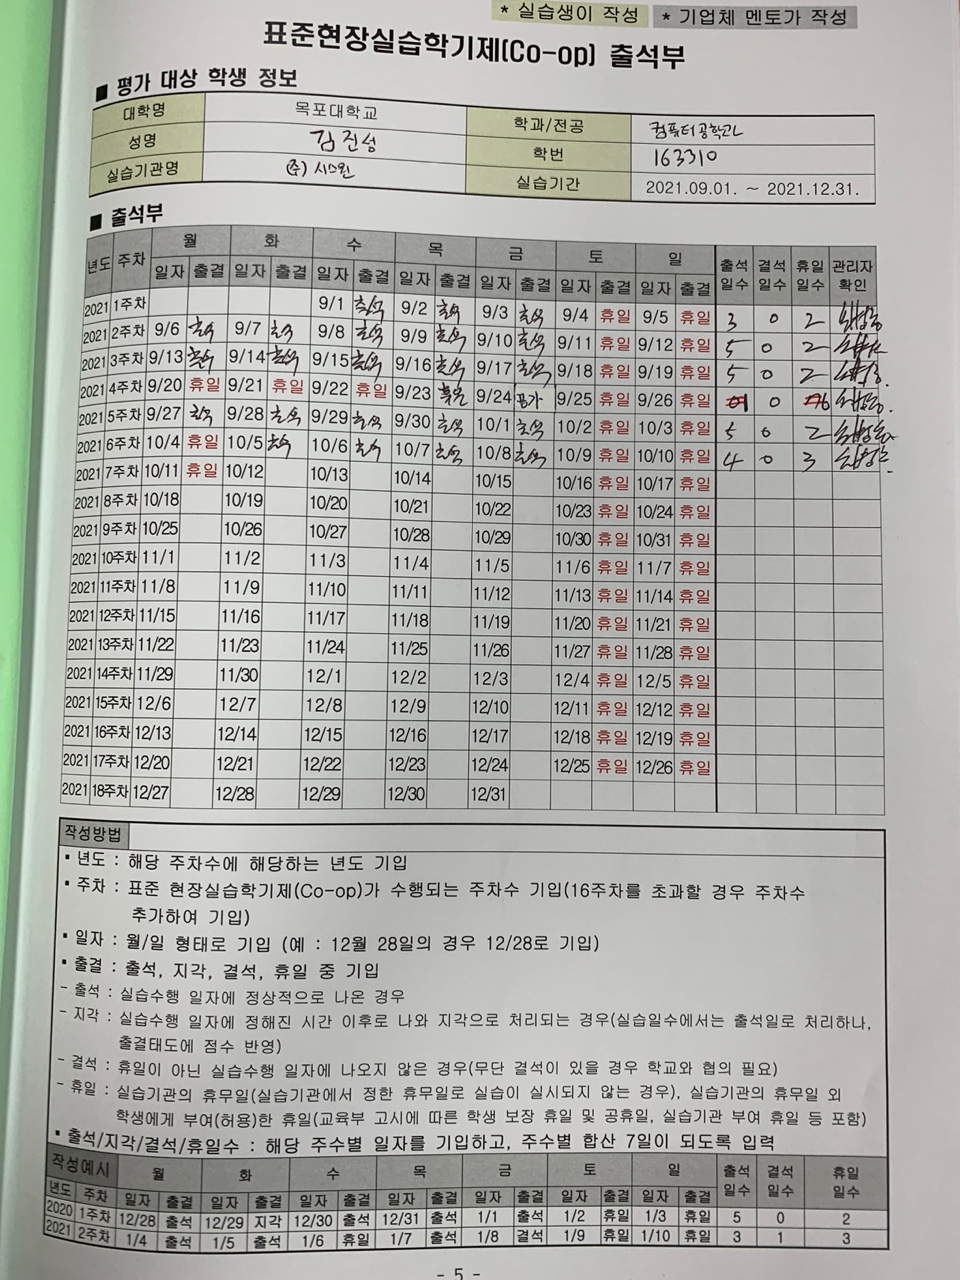 * 실습생이 작성 * 기업체 멘토가 작성
표준현장실습학기제(Co-op) 출석부
■ 평가 대상 학생 정보
대학명 목포대학교 학과/전공 컴퓨터공학과
성명 김진성 학번 163310
실습기관명 (주) 시스윈 실습기간 2021.09.01. ~ 2021.12.31.
■ 출석부
년도 주차 월 화 수 목 금 토 일 출석일수 결석일수 휴일일수 관리자확인
일자 출결 일자 출결 일자 출결 일자 출결 일자 출결 일자 출결 일자 출결
2021 1주차 9/1 출석 9/2 출석 9/3 출석 9/4 휴일 9/5 휴일 3 0 2
2021 2주차 9/6 출석 9/7 출석 9/8 출석 9/9 출석 9/10 출석 9/11 휴일 9/12 휴일 5 0 2
2021 3주차 9/13 출석 9/14 출석 9/15 출석 9/16 출석 9/17 출석 9/18 휴일 9/19 휴일 5 0 2
2021 4주차 9/20 휴일 9/21 휴일 9/22 휴일 9/23 9/24 9/25 휴일 9/26 휴일 0
2021 5주차 9/27 출석 9/28 출석 9/29 출석 9/30 출석 10/1 출석 10/2 휴일 10/3 휴일 5 0 2
2021 6주차 10/4 휴일 10/5 출석 10/6 출석 10/7 출석 10/8 출석 10/9 휴일 10/10 휴일 4 0 3
2021 7주차 10/11 휴일 10/12 10/13 10/14 10/15 10/16 휴일 10/17 휴일
2021 8주차 10/18 10/19 10/20 10/21 10/22 10/23 휴일 10/24 휴일
2021 9주차 10/25 10/26 10/27 10/28 10/29 10/30 휴일 10/31 휴일
2021 10주차 11/1 11/2 11/3 11/4 11/5 11/6 휴일 11/7 휴일
2021 11주차 11/8 11/9 11/10 11/11 11/12 11/13 휴일 11/14 휴일
2021 12주차 11/15 11/16 11/17 11/18 11/19 11/20 휴일 11/21 휴일
2021 13주차 11/22 11/23 11/24 11/25 11/26 11/27 휴일 11/28 휴일
2021 14주차 11/29 11/30 12/1 12/2 12/3 12/4 휴일 12/5 휴일
2021 15주차 12/6 12/7 12/8 12/9 12/10 12/11 휴일 12/12 휴일
2021 16주차 12/13 12/14 12/15 12/16 12/17 12/18 휴일 12/19 휴일
2021 17주차 12/20 12/21 12/22 12/23 12/24 12/25 휴일 12/26 휴일
2021 18주차 12/27 12/28 12/29 12/30 12/31
작성방법
▪ 년도 : 해당 주차수에 해당하는 년도 기입
▪ 주차 : 표준 현장실습학기제(Co-op)가 수행되는 주차수 기입(16주차를 초과할 경우 주차수
추가하여 기입)
▪ 일자 : 월/일 형태로 기입 (예 : 12월 28일의 경우 12/28로 기입)
▪ 출결 : 출석, 지각, 결석, 휴일 중 기입
- 출석 : 실습수행 일자에 정상적으로 나온 경우
- 지각 : 실습수행 일자에 정해진 시간 이후로 나와 지각으로 처리되는 경우(실습일수에서는 출석일로 처리하나,
출결태도에 점수 반영)
- 결석 : 휴일이 아닌 실습수행 일자에 나오지 않은 경우(무단 결석이 있을 경우 학교와 협의 필요)
- 휴일 : 실습기관의 휴무일(실습기관에서 정한 휴무일로 실습이 실시되지 않는 경우), 실습기관의 휴무일 외
학생에게 부여(허용)한 휴일(교육부 고시에 따른 학생 보장 휴일 및 공휴일, 실습기관 부여 휴일 등 포함)
▪ 출석/지각/결석/휴일수 : 해당 주수별 일자를 기입하고, 주수별 합산 7일이 되도록 입력
작성예시 월 화 수 목 금 토 일 출석일수 결석일수 휴일일수
년도 주차 일자 출결 일자 출결 일자 출결 일자 출결 일자 출결 일자 출결 일자 출결
2020 1주차 12/28 출석 12/29 지각 12/30 출석 12/31 출석 1/1 출석 1/2 휴일 1/3 휴일 5 0 2
2021 2주차 1/4 출석 1/5 출석 1/6 휴일 1/7 출석 1/8 결석 1/9 휴일 1/10 휴일 3 1 3
- 5 -